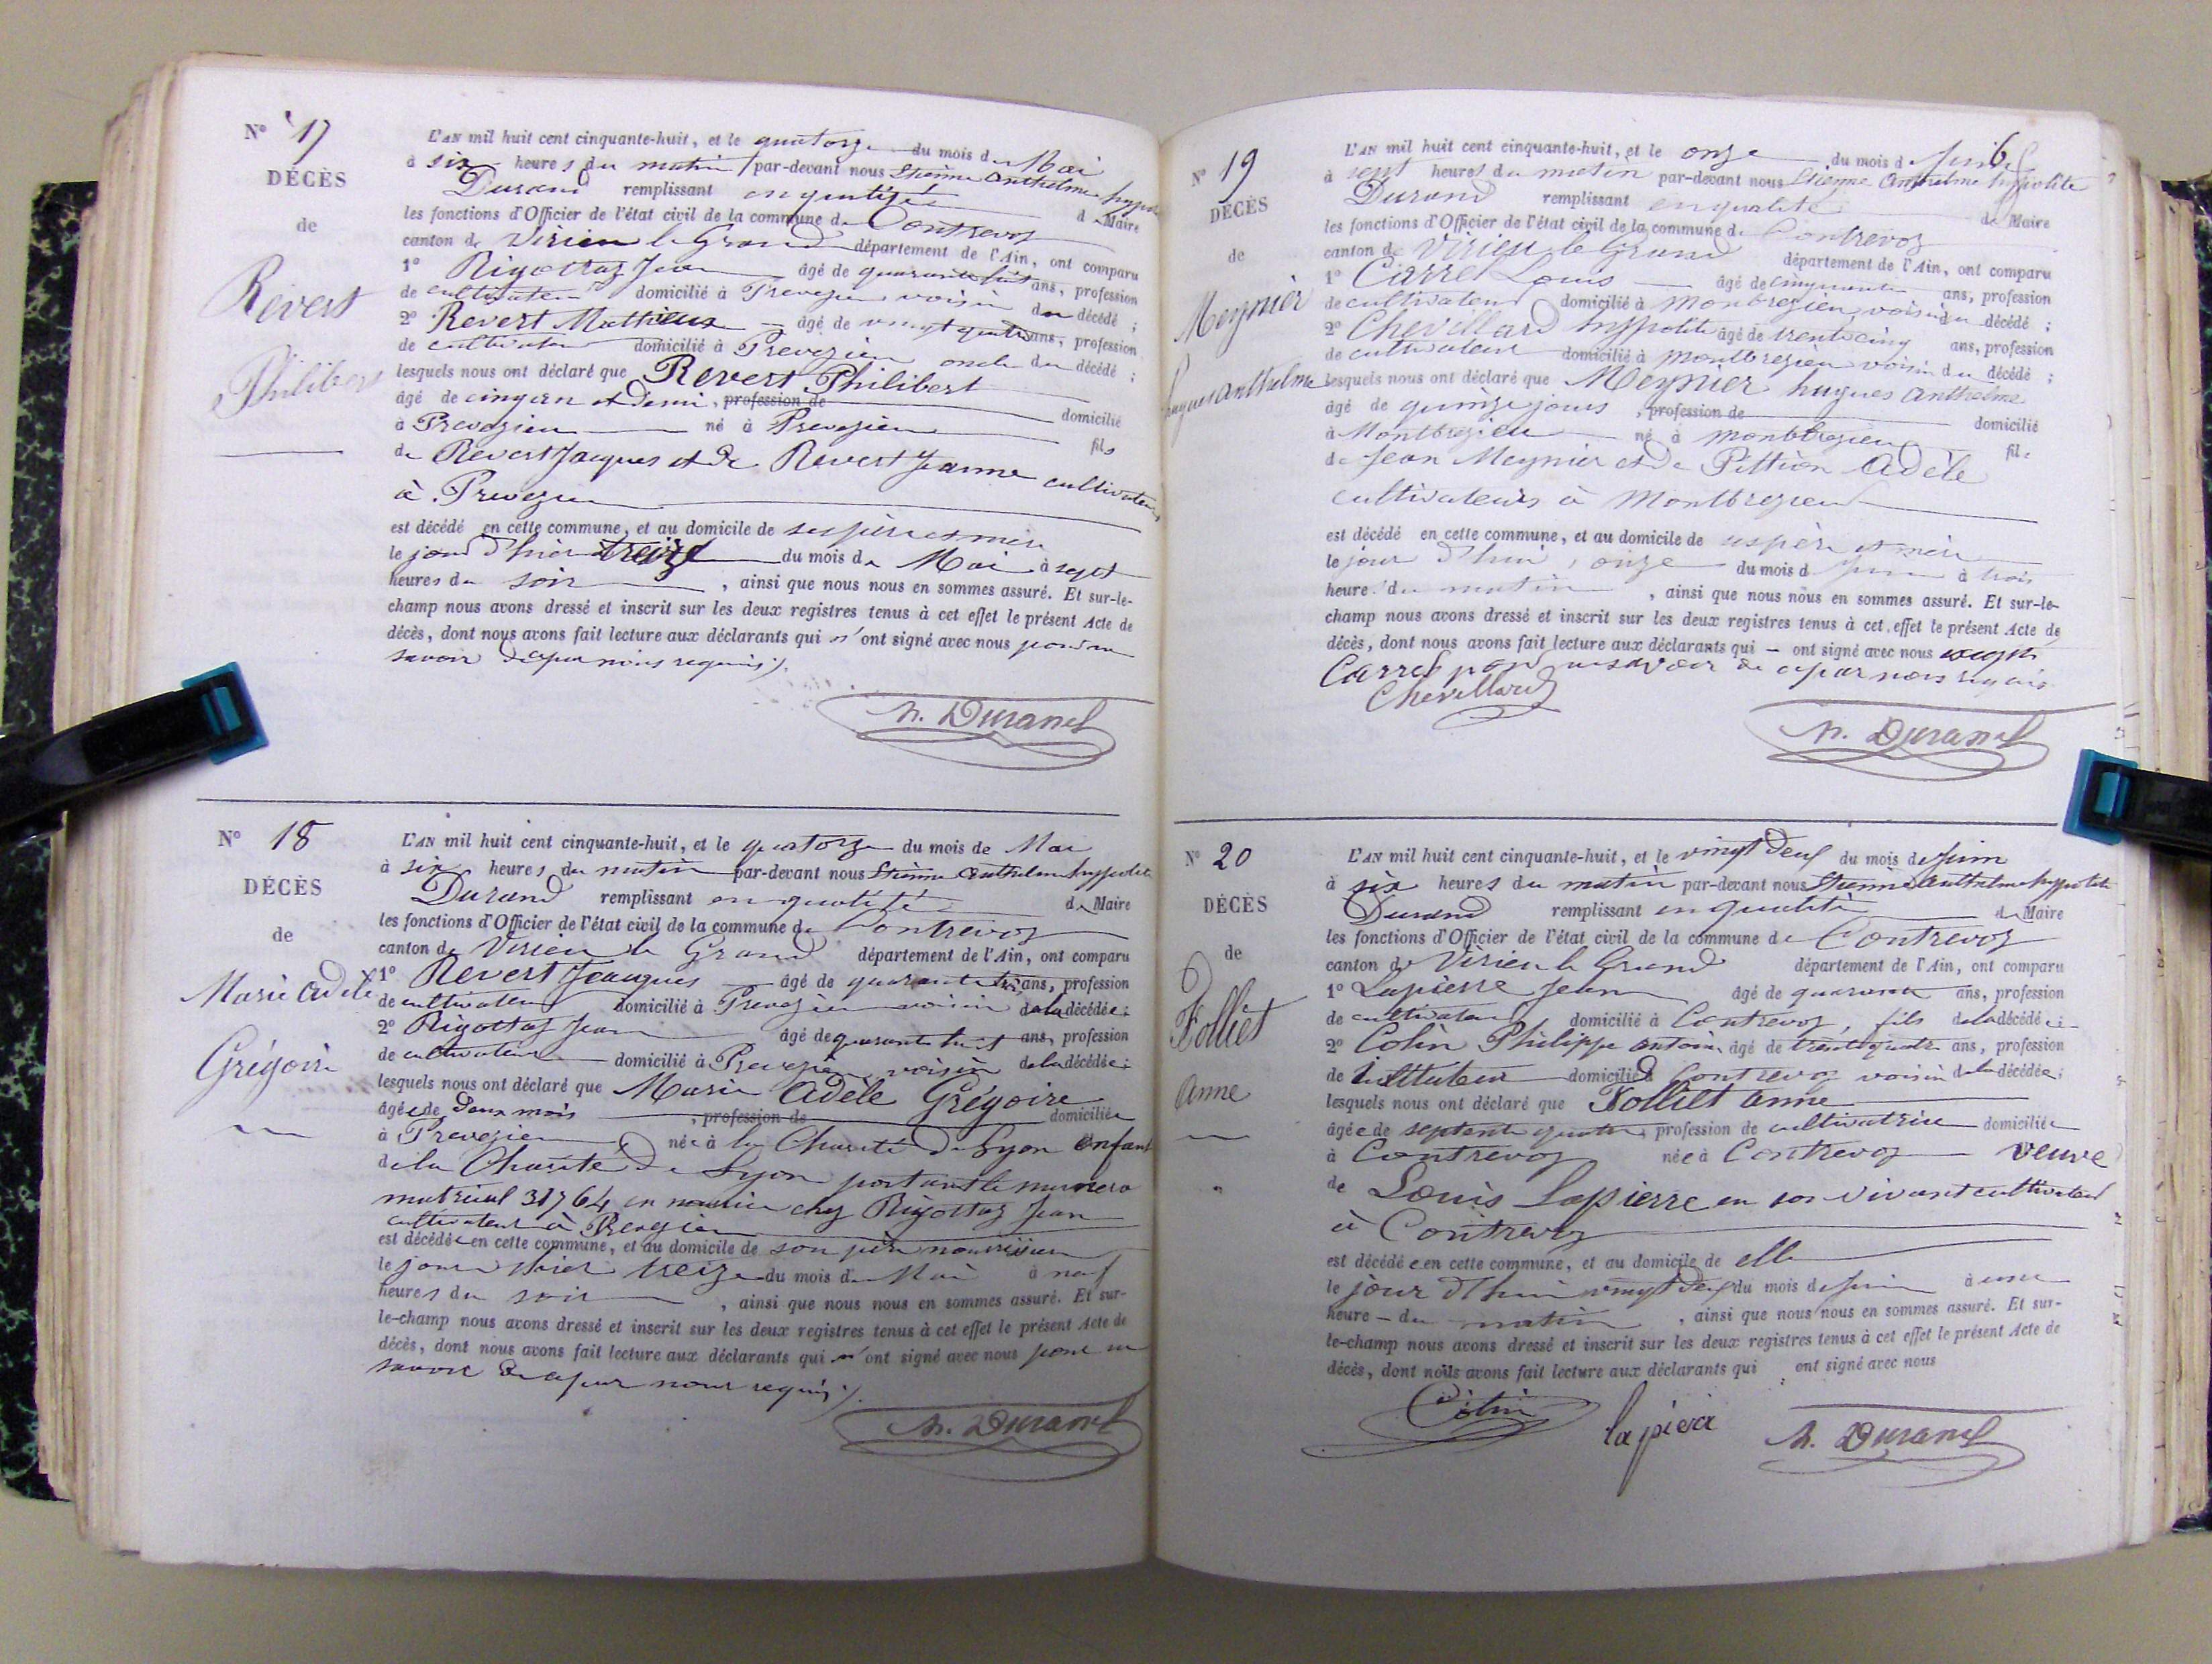 N° 17
DÉCÈS
de
Revert
Philibert
L'AN mil huit cent cinquante-huit, et le quatorze du mois de Mai
à six heures du matin par-devant nous Etienne Anthelme hypo
Durand remplissant en qualité de Maire
les fonctions d'Officier de l'état civil de la commune de Contrevoz
canton de Virieu le Grand département de l'Ain, ont comparu
1° Rigottaz Jean âgé de quarante huit ans, profession
de cultivateur domicilié à Prevezieu voisin du décédé ;
2° Revert Mathieux âgé de vingt quatre ans, profession
de cultivateur domicilié à Prevezieu oncle du décédé ;
lesquels nous ont déclaré que Revert Philibert
âgé de cinq an et demi, profession de domicilié
à Prevezieu né à Prevezieu fils
de Revert Jacques et de Revert Jeanne cultivateurs
à Prevezieu
est décédé en cette commune, et au domicile de ses père et mère
le jour d'hier treize du mois de Mai à sept
heures du soir, ainsi que nous nous en sommes assuré. Et sur-le-
champ nous avons dressé et inscrit sur les deux registres tenus à cet effet le présent Acte de
décès, dont nous avons fait lecture aux déclarants qui n'ont signé avec nous pour ne
savoir de ce par nous requis.
h. Durand
N° 18
DÉCÈS
de
Marie Adèle
Grégoire
L'AN mil huit cent cinquante-huit, et le quatorze du mois de Mai
à six heures du matin par-devant nous Etienne Anthelme hyppolite
Durand remplissant en qualité de Maire
les fonctions d'Officier de l'état civil de la commune de Contrevoz
canton de Virieu le Grand département de l'Ain, ont comparu
1° Revert Jeacques âgé de quarante trois ans, profession
de cultivateur domicilié à Prevezieu voisin de la décédée ;
2° Rigottaz Jean âgé de quarante huit ans, profession
de cultivateur domicilié à Prevezieu voisin de la décédée ;
lesquels nous ont déclaré que Marie Adèle Grégoire
âgée de deux mois, profession de domiciliée
à Prevezieu née à la Charité de Lyon enfant
de la Charité de Lyon portant le numéro
matricul 31764 en nourice chez Rigottaz Jean
cultivateur à Prevezieu
est décédée en cette commune, et au domicile de son père nourricier
le jour d'hier treize du mois de Mai à neuf
heures du soir, ainsi que nous nous en sommes assuré. Et sur-
le-champ nous avons dressé et inscrit sur les deux registres tenus à cet effet le présent Acte de
décès, dont nous avons fait lecture aux déclarants qui n'ont signé avec nous pour ne
savoir de ce par nous requis.
h. Durand
N° 19
DÉCÈS
de
Meynier
hugues anthelme
6
L'AN mil huit cent cinquante-huit, et le onze du mois de Juin
à sept heures du matin par-devant nous Etienne Anthelme hyppolite
Durand remplissant en qualité de Maire
les fonctions d'Officier de l'état civil de la commune de Contrevoz
canton de Virieu le Grand département de l'Ain, ont comparu
1° Carrel Louis âgé de cinquante ans, profession
de cultivateur domicilié à Montbrezieu voisin du décédé ;
2° Chevillard hyppolite âgé de trente cinq ans, profession
de cultivateur domicilié à Montbrezieu voisin du décédé ;
lesquels nous ont déclaré que Meynier hugues anthelme
âgé de quinze jours, profession de domicilié
à Montbrezieu né à Montbrezieu fils
de Jean Meynier et de Pittion Adèle
cultivateurs à Montbrezieu
est décédé en cette commune, et au domicile de ses père et mère
le jour d'hui, onze du mois de Juin à trois
heures du matin, ainsi que nous nous en sommes assuré. Et sur-le-
champ nous avons dressé et inscrit sur les deux registres tenus à cet effet le présent Acte de
décès, dont nous avons fait lecture aux déclarants qui – ont signé avec nous excepté
Carrel pour ne savoir de ce par nous requis
Chevillard
h. Durand
N° 20
DÉCÈS
de
Folliet
Anne
L'AN mil huit cent cinquante-huit, et le vingt deux du mois de Juin
à six heures du matin par-devant nous Etienne anthelme hyppolite
Durand remplissant en qualité de Maire
les fonctions d'Officier de l'état civil de la commune de Contrevoz
canton de Virieu le Grand département de l'Ain, ont comparu
1° Lapierre Jean âgé de quarante ans, profession
de cultivateur domicilié à Contrevoz, fils de la décédée ;
2° Colin Philippe Antoine âgé de trente quatre ans, profession
de Instituteur domicilié à Contrevoz voisin de la décédée ;
lesquels nous ont déclaré que Folliet Anne
âgée de septente quatre, profession de cultivatrice domiciliée
à Contrevoz née à Contrevoz veuve
de Louis Lapierre en son vivant cultivateur
à Contrevoz
est décédée en cette commune, et au domicile de elle
le jour d'hui vingt deux du mois de Juin à une
heure – du matin, ainsi que nous nous en sommes assuré. Et sur-
le-champ nous avons dressé et inscrit sur les deux registres tenus à cet effet le présent Acte de
décès, dont nous avons fait lecture aux déclarants qui ont signé avec nous
Colin lapiere h. Durand